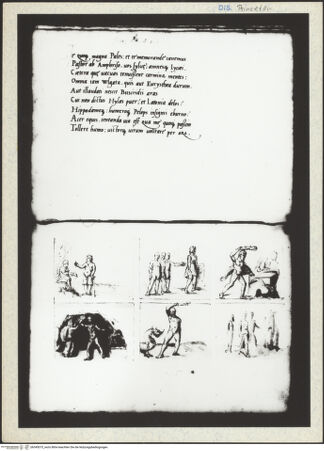 DIS. Princeton
e quoq; magna Pales: et te memorande canemus
Pastor ab Amphryso: uos sylue: amnesq; lycei.
Cetera que uacuas tenuissent carmina mentes:
Omnia iam uulgata. quis aut Eurysthea durum.
Aut illaudati nescit Busiridis aras
Cui non dictus Hylas puer: et Latonia delos:
Hippodameq; humeroq; Pelops insignis eburno:
Acer equis. tentanda uia est qua me quoq; possim
Tollere humo: uictorq; uirum uolitare per ora.